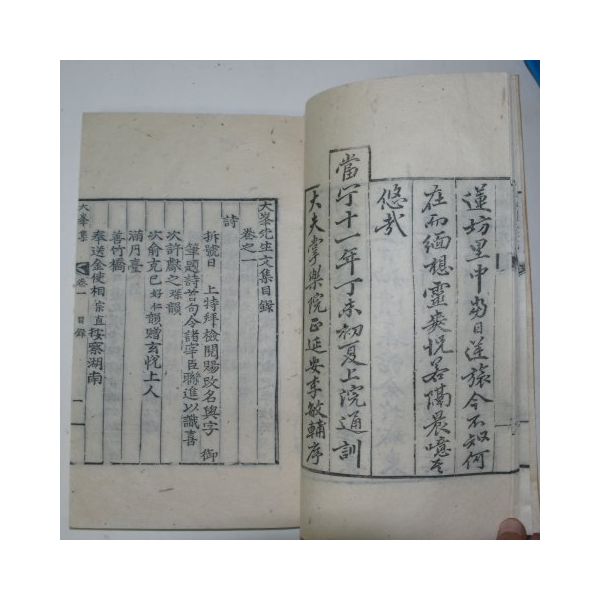 蓮坊里中當日逆旅今不知何
在而緬想靈爽怳若隔晨噫
悠哉
當宁十一年丁未初夏上浣通訓
大夫掌樂院正延安李敏輔序
大峯先生文集目錄
卷之一
詩
拆號日 上特拜檢閱賜改名與字 御
筆題詩首句令諸宰臣聯進以識喜
次許獻之璘韻
次俞克己好仁韻贈玄悅上人
滿月臺
善竹橋
奉送金使相宗直按察湖南
大峯集 卷一 目錄 一